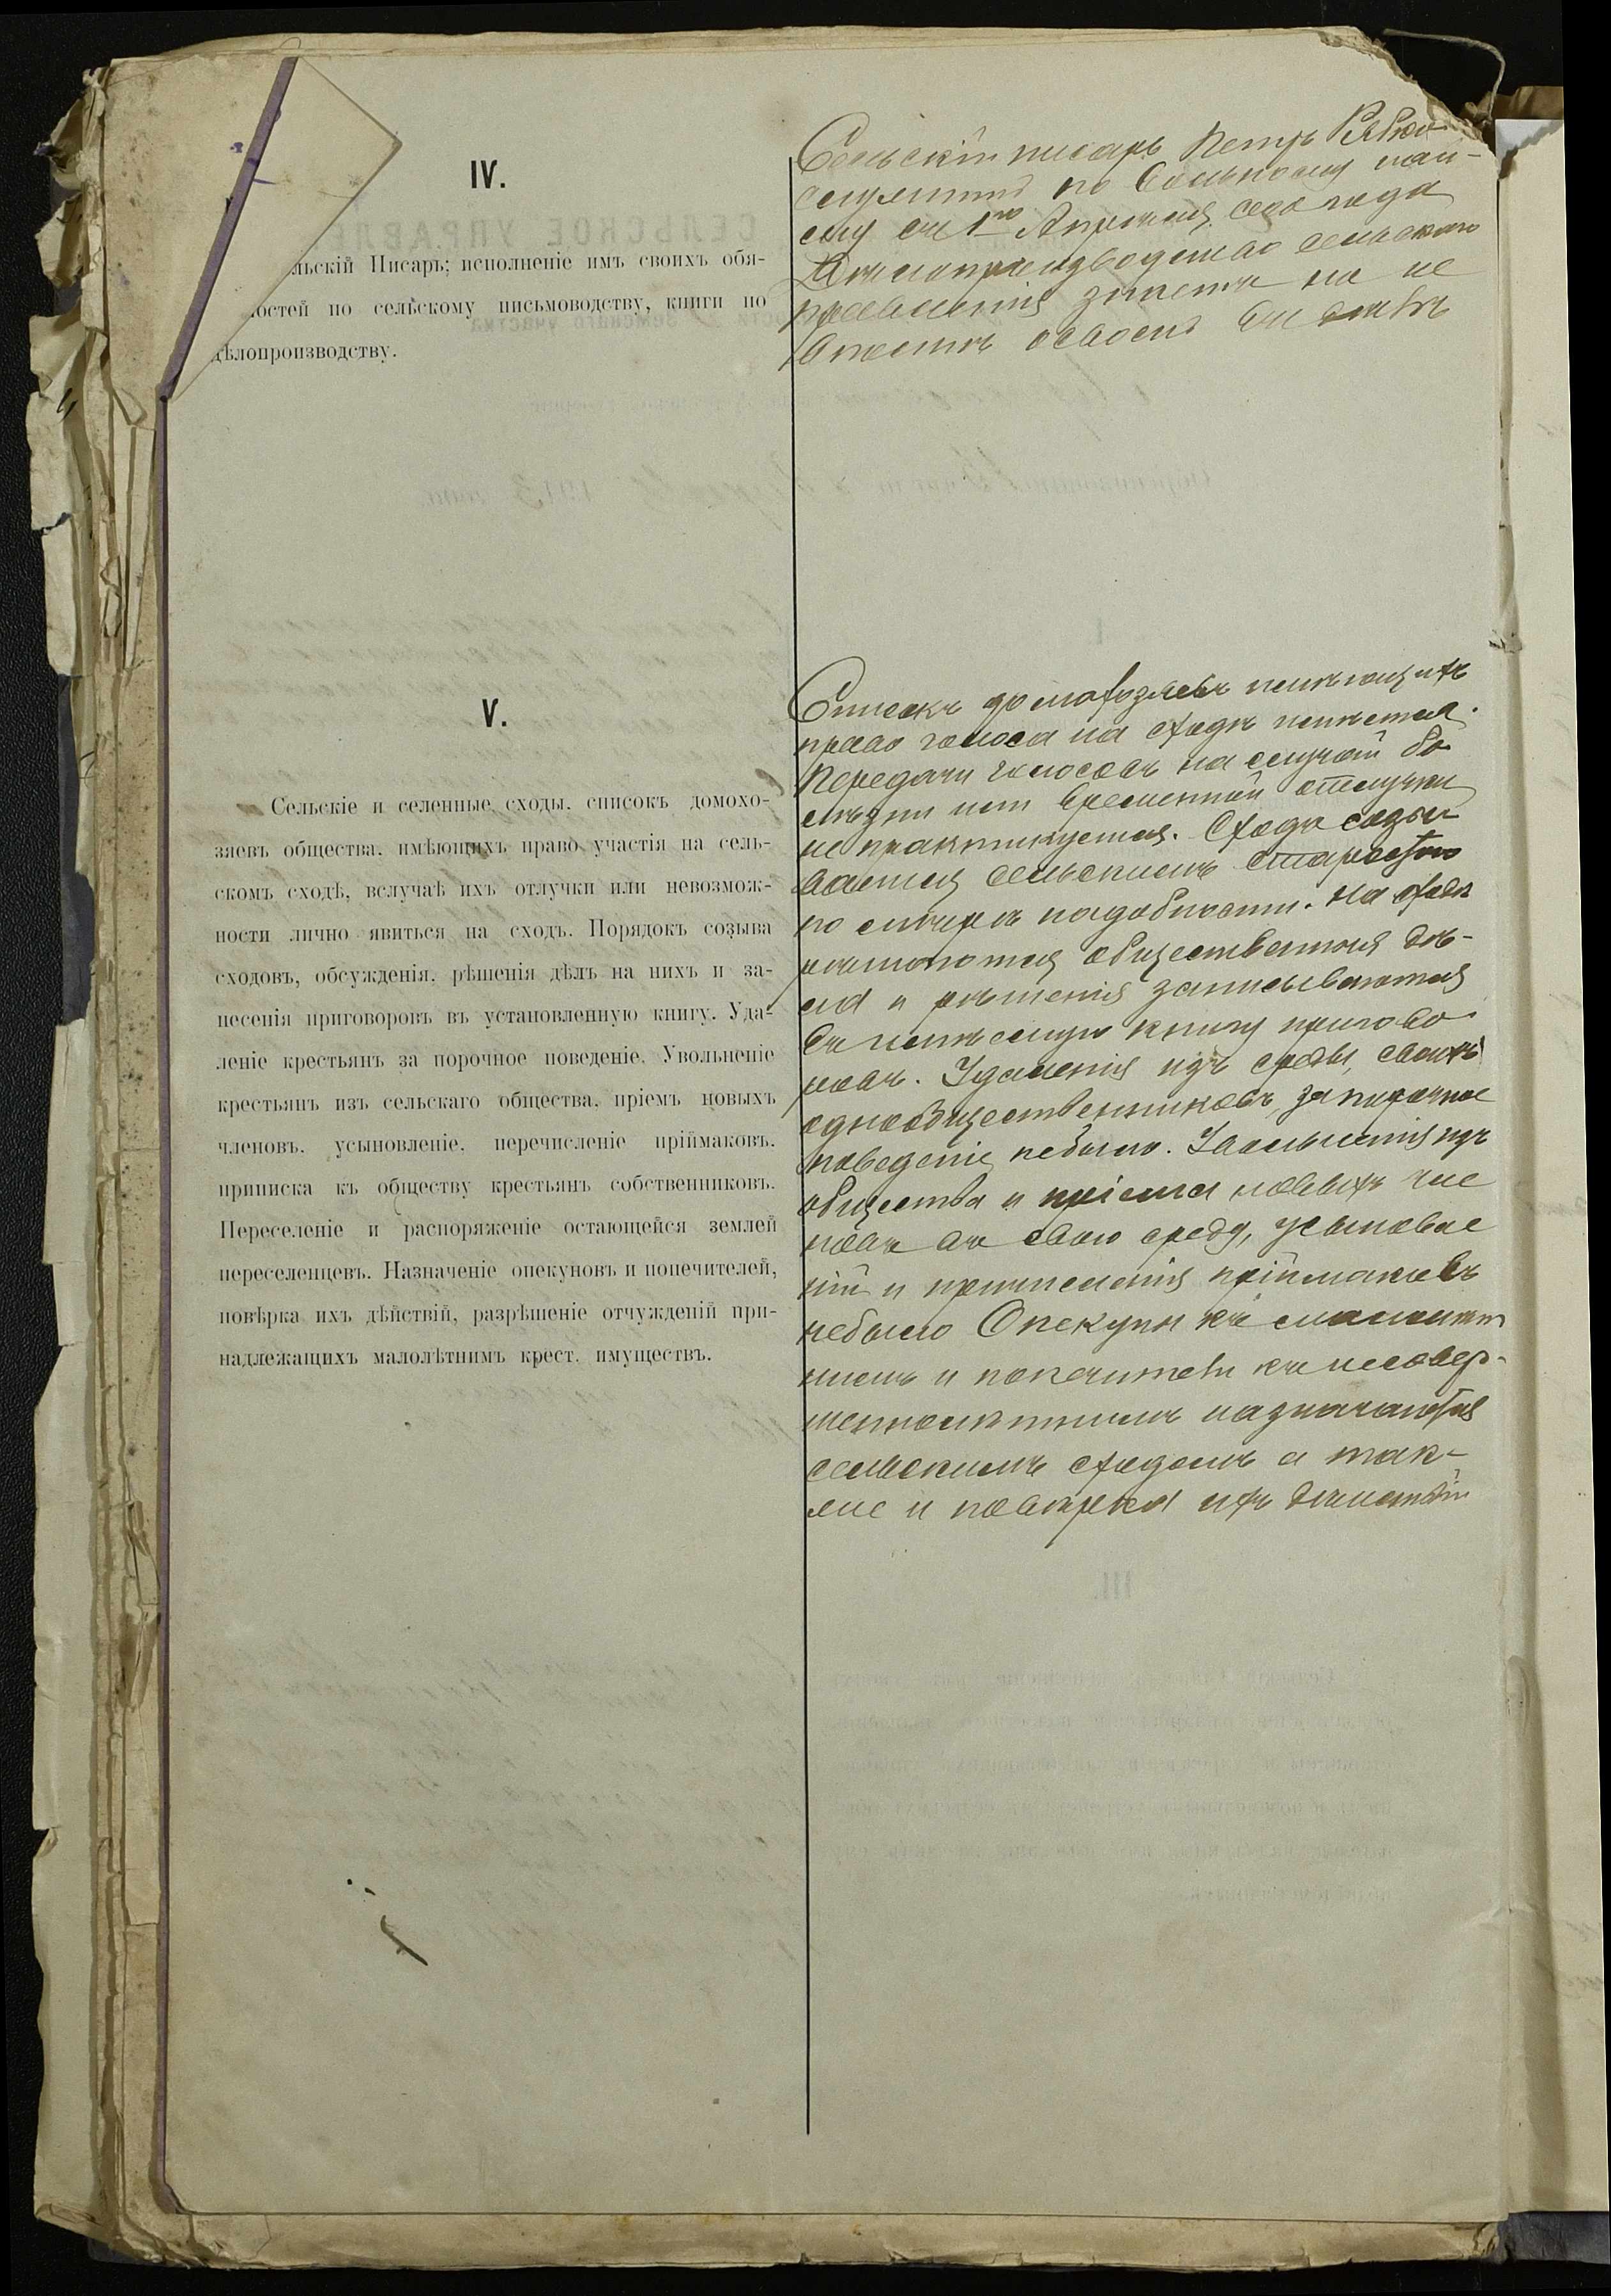 IV.
льскій Писарь; исполненіе имъ своихъ обя-
ностей по сельскому письмоводству, книги по
дѣлопроизводству.
Сельскій писарь Петръ Рябко
служитъ по вольному най-
му съ 1го Апрѣля сего года
Дѣлопроизводство сельскаго
правленія знаетъ но не
вполнѣ освоенъ съ дѣлѣ
V.
Сельскіе и селенные сходы. списокъ домохо-
зяевъ общества. имѣющихъ право участія на сель-
скомъ сходѣ, вслучаѣ ихъ отлучки или невозмож-
ности лично явиться на сходъ. Порядокъ созыва
сходовъ, обсужденія. рѣшенія дѣлъ на нихъ и за-
несенія приговоровъ въ установленную книгу. Уда-
леніе крестьянъ за порочное поведеніе. Увольненіе
крестьянъ изъ сельскаго общества. пріемъ новыхъ
членовъ. усыновленіе. перечисленіе пріймаковъ.
приписка къ обществу крестьянъ собственниковъ.
Переселеніе и распоряженіе остающейся землей
переселенцевъ. Назначеніе опекуновъ и попечителей,
повѣрка ихъ дѣйствій, разрѣшеніе отчужденій при-
надлежащихъ малолѣтнимъ крест. имуществъ.
Списокъ домохозяевъ имѣющихъ
право голоса на сходѣ имѣется.
Передачи голосовъ на случай бо
лѣзни или временной отлучки
не практикуется. Сходъ созы
вается сельскимъ старостою
по мѣрѣ надобности. На сходѣ
решаются общественныя дѣ-
ла и рѣшенія записываются
въ имѣемую книгу пригово
ровъ. Удаленія изъ среды, своихъ
однообщественниковъ за порочное
поведеніе небыло. Увольненія изъ
общества и пріема новыхъ чле
новъ въ свою среду, усыновле
ній и причисленія пріймаковъ
небыло Опекуны къ малолѣт
нимъ и попечители къ несовер-
шеннолѣтнимъ назначаются
сельскимъ сходомъ а так-
же и повѣрка ихъ дѣйствій